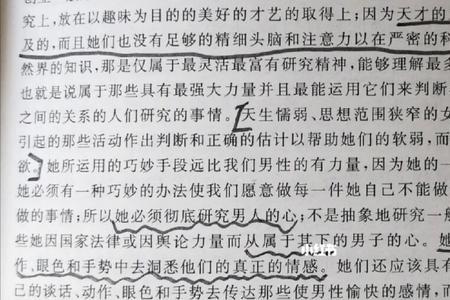 究上,放在以趣味为目的的美好的才艺的取得上;因为天才的
及的,而且她们也没有足够的精细头脑和注意力以在严密的科
然界的知识,那是仅属于最灵活最富有研究精神,能够理解最多
也就是说属于那些具有最强大力量并且最能运用它们来判断
之间的关系的人们研究的事情。天生懦弱、思想范围狭窄的女
引起的那些活动作出判断和正确的估计以帮助她们的软弱,而
欲。她所运用的巧妙手段远比我们男性的有力量,因为她的一
她必须有一种巧妙的办法使我们愿意做每一件她自己不能做
做的事情;所以她必须彻底研究男人的心;不是抽象地研究一般
些她因国家法律或因舆论力量而从属于其下的男子的心。她
作、眼色和手势中去洞悉他们的真正的情感。她们还应该具有
己的谈话、动作、眼色和手势去传达那些使男性愉快的感情,而
小红书